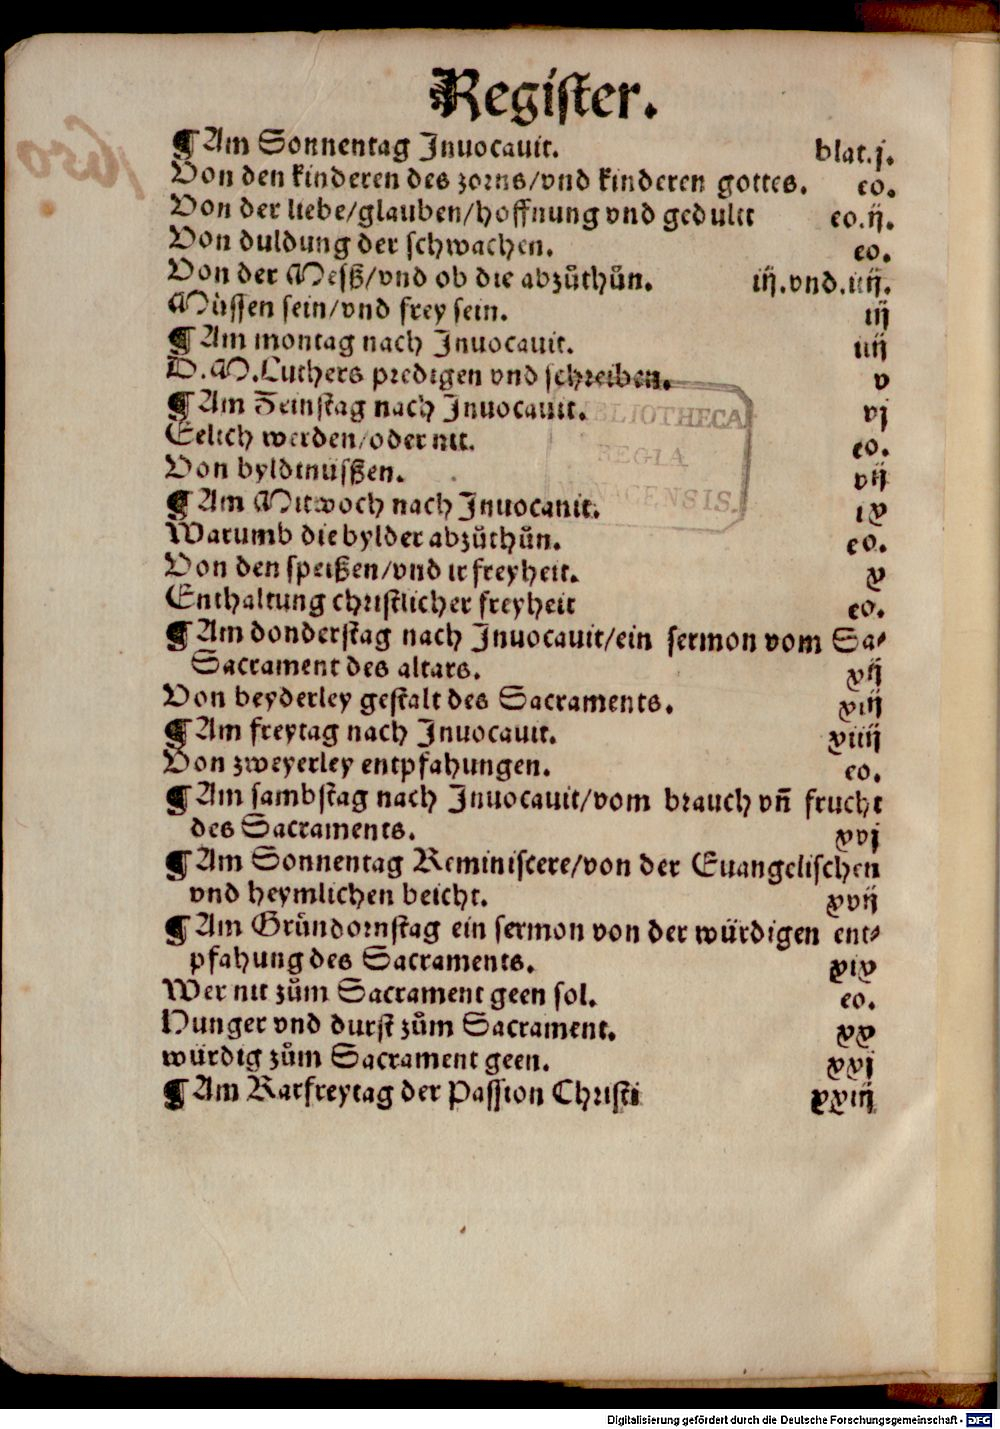 Register.
¶ Am Sonnentag Inuocauit. blat.j.
Von den kinderen des zorns/vnd kinderen gottes. eo.
Von der liebe/glauben/hoffnung vnd gedultt eo.ij.
Von duldung der schwachen. eo.
Von der Messz/vnd ob die abzůthůn. iij.vnd.iiij.
Müssen sein/vnd frey sein. iij
¶ Am montag nach Inuocauit. iiij
D.M.Luthers predigen vnd schreiben. v
¶ Am Zeinstag nach Inuocauit. vj
Eelich werden/oder nit. eo.
Von byldtnüsßen. vij
¶ Am Mitwoch nach Inuocanit. ix
Warumb die bylder abzůthůn. eo.
Von den speißen/vnd ir freyheit. x
Enthaltung christlicher freyheit eo.
¶ Am donderstag nach Inuocauit/ein sermon vom Sa⸗
Sacrament des altars. xij
Von beyderley gestalt des Sacraments. xiij
¶ Am freytag nach Inuocauit. xiiij
Von zweyerley entpfahungen. eo.
¶ Am sambstag nach Inuocauit/vom brauch vñ frucht
des Sacraments. xvj
¶ Am Sonnentag Reminiscere/von der Euangelischen
vnd heymlichen beicht. xvij
¶ Am Gründornstag ein sermon von der würdigen ent⸗
pfahung des Sacraments. xix
Wer nit zům Sacrament geen sol. eo.
Hunger vnd durst zům Sacrament. xx
würdig zům Sacrament geen. xxj
¶ Am Karfreytag der Passion Christi xxiij
BIBLIOTHECA
REGIA
MONACENSIS.
Digitalisierung gefördert durch die Deutsche Forschungsgemeinschaft - DFG